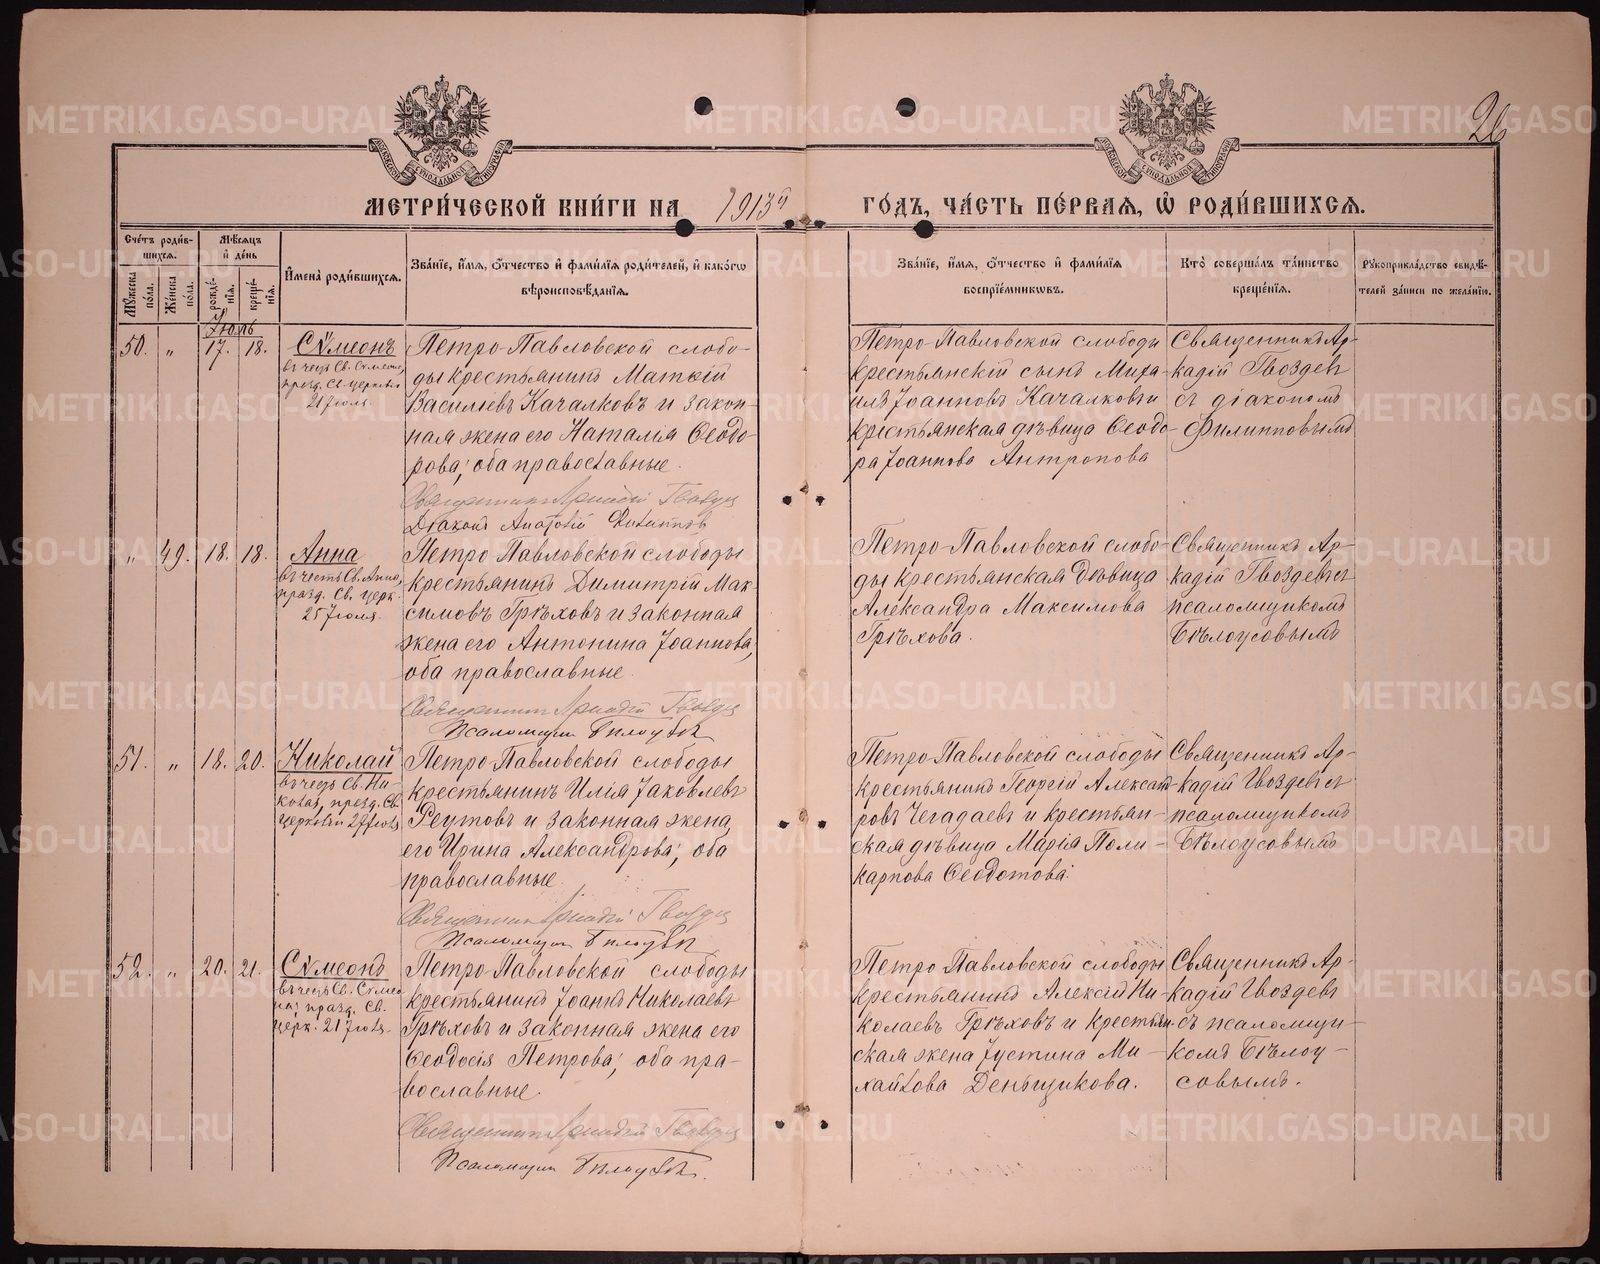 26
МЕТРИ́ЧЕСКОЙ КНИ́ГИ НА 1913й ГО́ДЪ, ЧА́СТЬ ПЕ́РВАЯ, Ѡ҆ РОДИ́ВШИХСѦ.
Сче́тъ роди́в-
шихсѧ.
Мꙋ́жеска по́ла.
Же́нска по́ла.
Мѣ́сѧцъ
и҆ де́нь
рожде́нїѧ.
креще́нїѧ.
И҆мена̀ роди́вшихсѧ.
Зва́нїе, и҆́мѧ, ѻ҆́тчество и҆ фамі́лїѧ роди́телей, и҆ како́гѡ
вѣроисповѣ́данїѧ.
Зва́нїе, и҆́мѧ, ѻ҆́тчество и҆ фамі́лїѧ
воспрїе́мникѡвъ.
Кто̀ соверша́лъ та́инство
креще́нїѧ.
Рꙋкоприкла́дство свидѣ́-
телей за́писи по жела́нїю.
Іюль
50. „ 17. 18.
Сѵмеонъ
въ честь Св. Сѵмеона,
празд. Св. церковію
21 Іюля.
Петро-Павловской слобо-
ды крестьянинъ Матѳій
Васильевъ Качалковъ и закон-
ная жена его Наталія Ѳеодо-
рова; оба православные.
Священникъ Аркадій Гвоздевъ
Діаконъ Анатолій Филипповъ
Петро-Павловской слободы
крестьянскій сынъ Миха-
илъ Іоанновъ Качалковъ и
крестьянская дѣвица Ѳеодо-
ра Іоаннова Антропова
Священникъ Ар-
кадій Гвоздевъ
съ діакономъ
Филипповымъ
„ 49. 18. 18.
Анна
въ честь Св. Анны,
празд. Св. церк.
25 Іюля.
Петро-Павловской слободы
крестьянинъ Димитрій Мак-
симовъ Грѣховъ и законная
жена его Антонина Іоаннова;
оба православные.
Священникъ Аркадій Гвоздевъ
Псаломщикъ Бѣлоусовъ
Петро-Павловской слобо-
ды крестьянская дѣвица
Александра Максимова
Грѣхова.
Священникъ Ар-
кадій Гвоздевъ съ
псаломщикомъ
Бѣлоусовымъ
51. „ 18. 20.
Николай
въ честь Св. Ни-
колая, празд. Св.
церковію 27 Іюля
Петро-Павловской слободы
крестьянинъ Илія Іаковлевъ
Реутовъ и законная жена
его Ирина Александрова; оба
православные.
Священникъ Аркадій Гвоздевъ
Псаломщикъ Бѣлоусовъ
Петро-Павловской слободы
крестьянинъ Георгій Александ-
ровъ Чегадаевъ и крестьян-
ская дѣвица Марія Поли-
карпова Ѳеодотова.
Священникъ Ар-
кадій Гвоздевъ съ
псаломщикомъ
Бѣлоусовымъ
52. „ 20. 21.
Сѵмеонъ
въ честь Св. Сѵмео-
на, празд. Св.
церк. 21 Іюля.
Петро-Павловской слободы
крестьянинъ Іоаннъ Николаевъ
Грѣховъ и законная жена его
Ѳеодосія Петрова; оба пра-
вославные.
Священникъ Аркадій Гвоздевъ
Псаломщикъ Бѣлоусовъ.
Петро-Павловской слободы
крестьянинъ Алексій Ни-
колаевъ Грѣховъ и крестьян-
ская жена Іустина Ми-
хайлова Деньщикова.
Священникъ Ар-
кадій Гвоздевъ
съ псаломщи-
комъ Бѣлоу-
совымъ.
METRIKI.GASO-URAL.RU